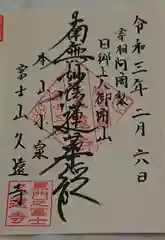 令和三年二月六日
宰相阿闍梨
日郷上人御開山
南無妙法蓮華経
本山小泉
富士山久遠寺